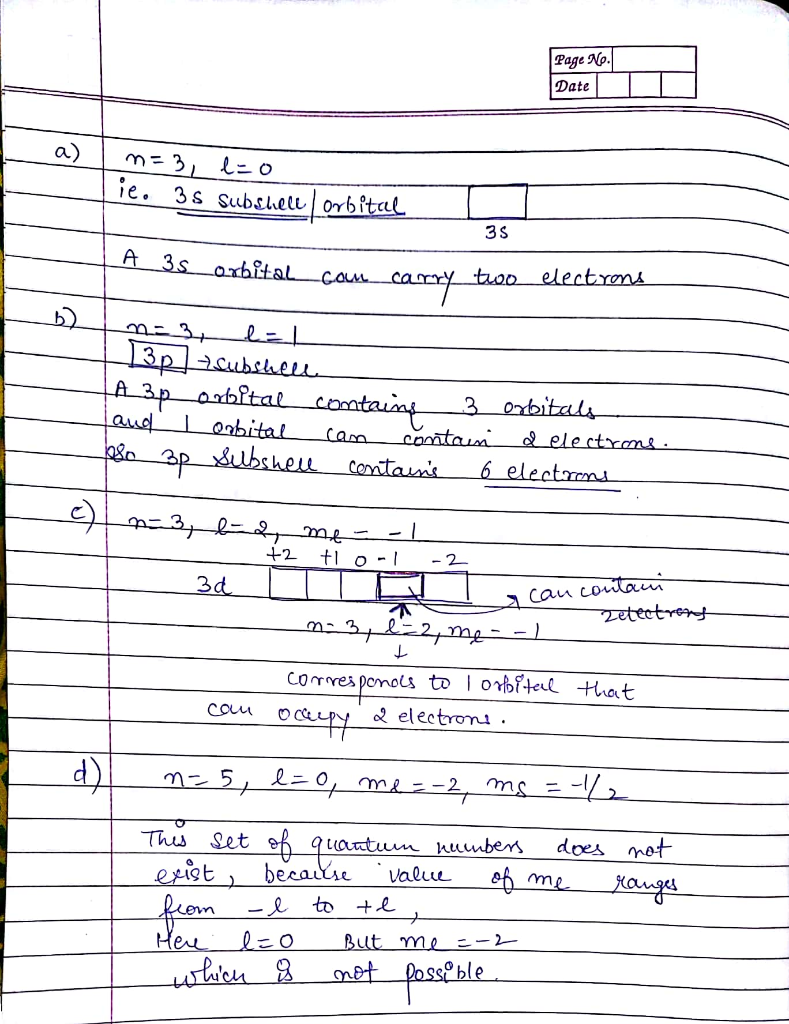 Page No.
Date
a) n = 3, l = 0
ie. 3s subshell / orbital
3s
A 3s orbital can carry two electrons
b) n = 3, l = 1
3p → subshell
A 3p orbital contains 3 orbitals
and 1 orbital can contain 2 electrons.
So 3p subshell contains 6 electrons
c) n = 3, l = 2, me = -1
+2 +1 0 -1 -2
3d can contain
2 electrons
n = 3, l = 2, me = -1
↓
corresponds to 1 orbital that
can occupy 2 electrons.
d) n = 5, l = 0, me = -2, ms = -1/2
This set of quantum numbers does not
exist, because value of me ranges
from -l to +l,
Here l = 0 But me = -2
which is not possible.